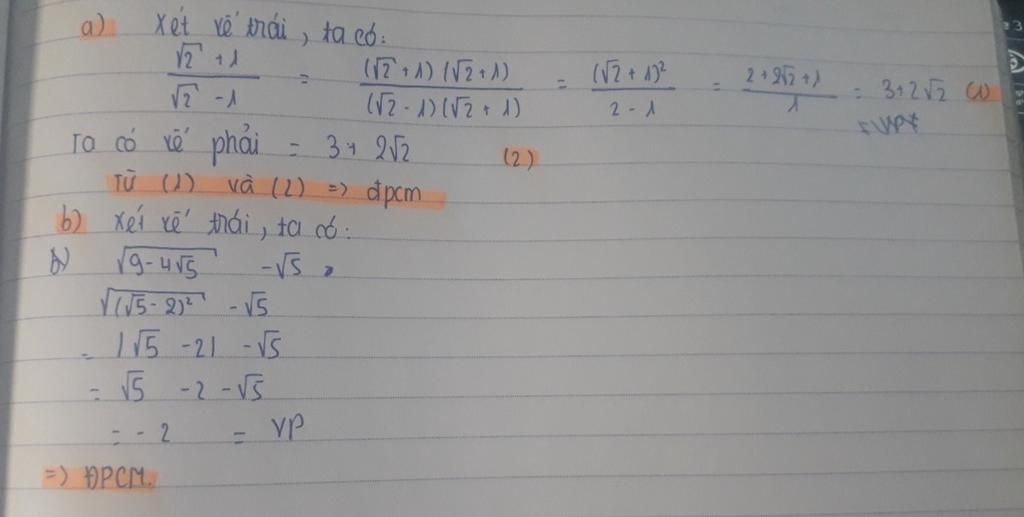 a) Xét vế trái, ta có:
(√2 + 1)/(√2 - 1) = ((√2 + 1)(√2 + 1))/((√2 - 1)(√2 + 1)) = (√2 + 1)²/(2 - 1) = (2 + 2√2 + 1)/1 = 3+2√2 (1)
Ta có vế phải = 3+ 2√2 (2)
Từ (1) và (2) => đpcm
b) Xét vế trái, ta có:
√(9-4√5) -√5
√((√5 - 2)²) -√5
= |√5 -2| -√5
= √5 -2 -√5
= -2 = VP
=> ĐPCM.